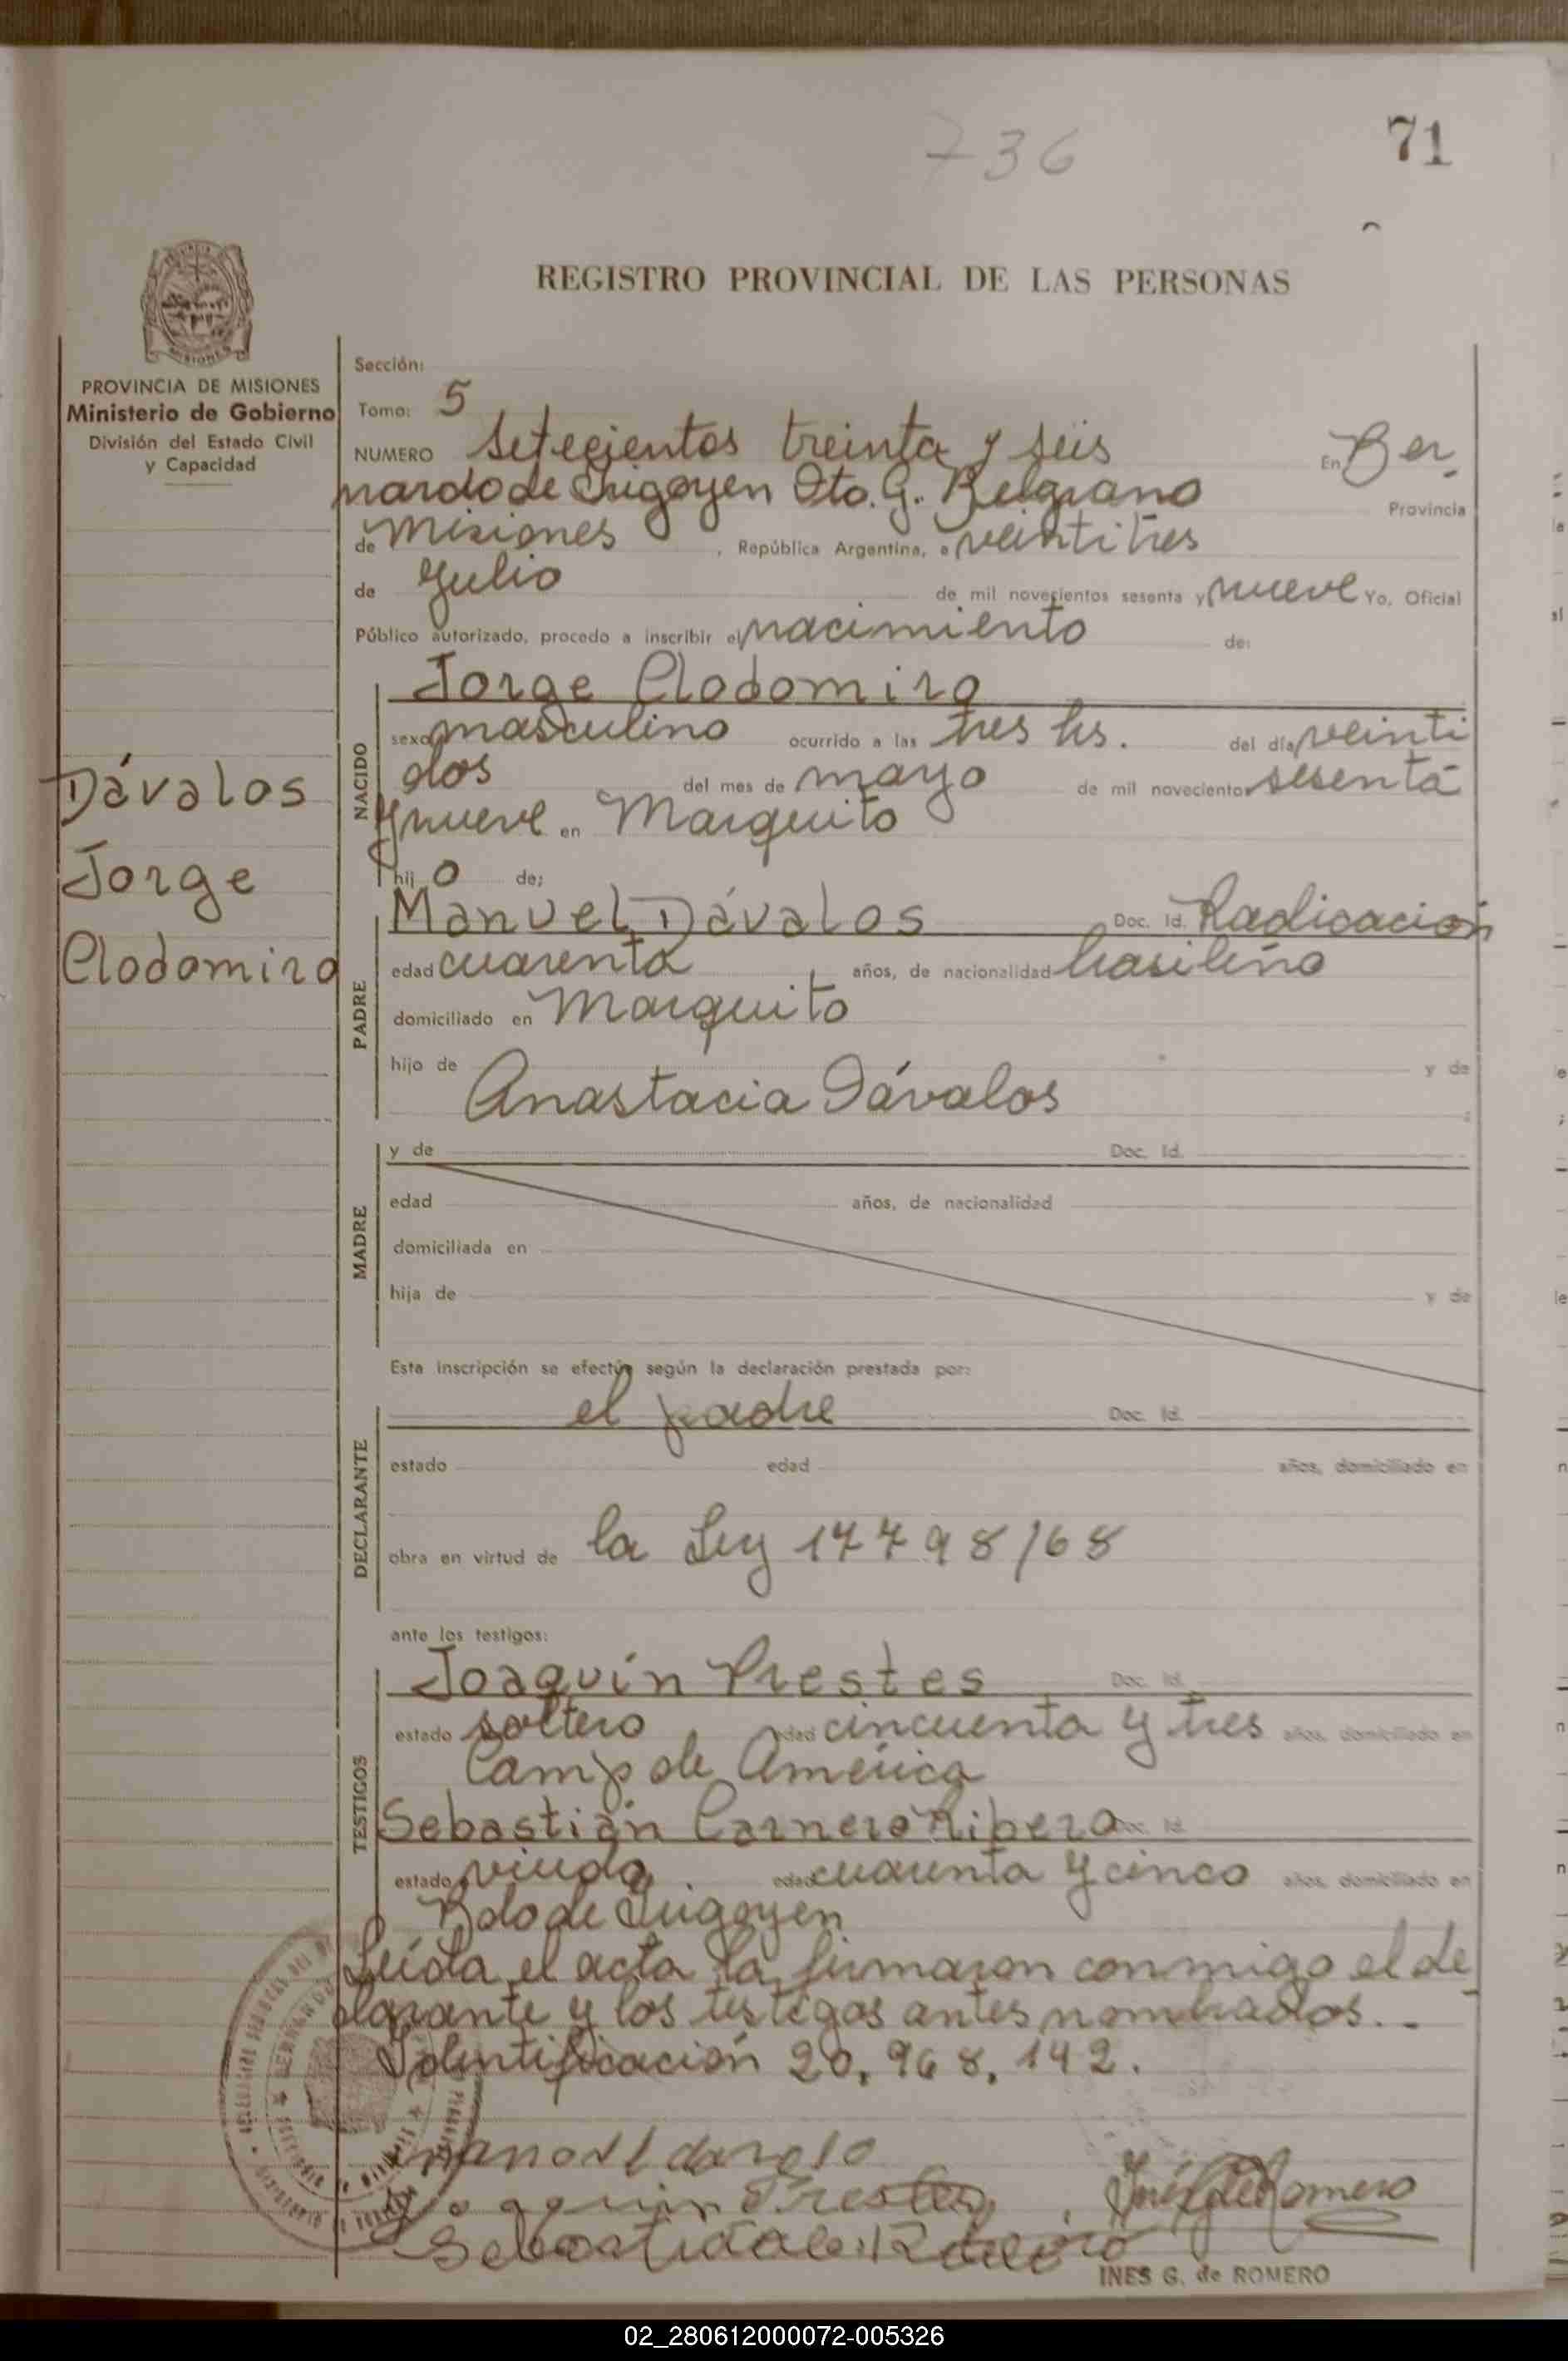 736
71
REGISTRO PROVINCIAL DE LAS PERSONAS
PROVINCIA DE MISIONES
Ministerio de Gobierno
División del Estado Civil
y Capacidad
Dávalos
Jorge
Clodomiro
Sección:
Tomo: 5
NUMERO Setecientos treinta y seis En Ber
nardo de Irigoyen Dto. G. Belgrano Provincia
de Misiones, República Argentina, a veintitres
de Julio de mil novecientos sesenta y nueve Yo, Oficial
Público autorizado, procedo a inscribir el nacimiento de:
NACIDO
Jorge Clodomiro
sexo masculino ocurrido a las tres hs. del día veinti
dos del mes de mayo de mil novecientos sesenta
y nueve en Marquito
hijo de;
PADRE
Manuel Dávalos Doc. Id. Radicación
edad cuarenta años, de nacionalidad brasileña
domiciliado en Marquito
hijo de y de
Anastacia Dávalos
MADRE
y de Doc. Id.
edad años, de nacionalidad
domiciliada en
hija de y de
Esta inscripción se efectúa según la declaración prestada por:
DECLARANTE
el padre Doc. Id.
estado edad años, domiciliado en
obra en virtud de la Ley 17798/68
ante los testigos:
TESTIGOS
Joaquín Prestes Doc. Id.
estado soltero edad cincuenta y tres años, domiciliado en
Camp de América
Sebastián Carnero Ribero Doc. Id.
estado viudo. edad cuarenta y cinco años, domiciliado en
Bdo de Irigoyen
Leída el acta la firmaron conmigo el de
clarante y los testigos antes nombrados.-
Identificación 20.968.142.
Prestes
Inés G de Romero
INES G. de ROMERO
02_280612000072-005326